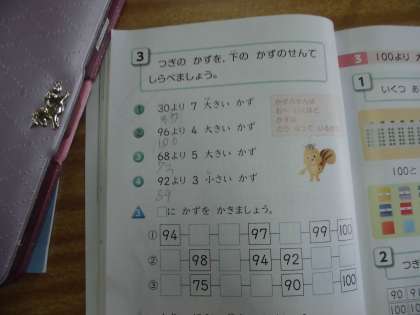 3 つぎの かずを、下の かずのせんで
しらべましょう。
1 30より 7 大きい かず
37
2 96より 4 大きい かず
100
3 68より 5 大きい かず
73
4 92より 3 小さい かず
89
□に かずを かきましょう。
① 94 97 99 100
② 98 94 92
③ 75 90 100
3 100より 大
1
いくつ あ
100と
2 つぎ
90 91